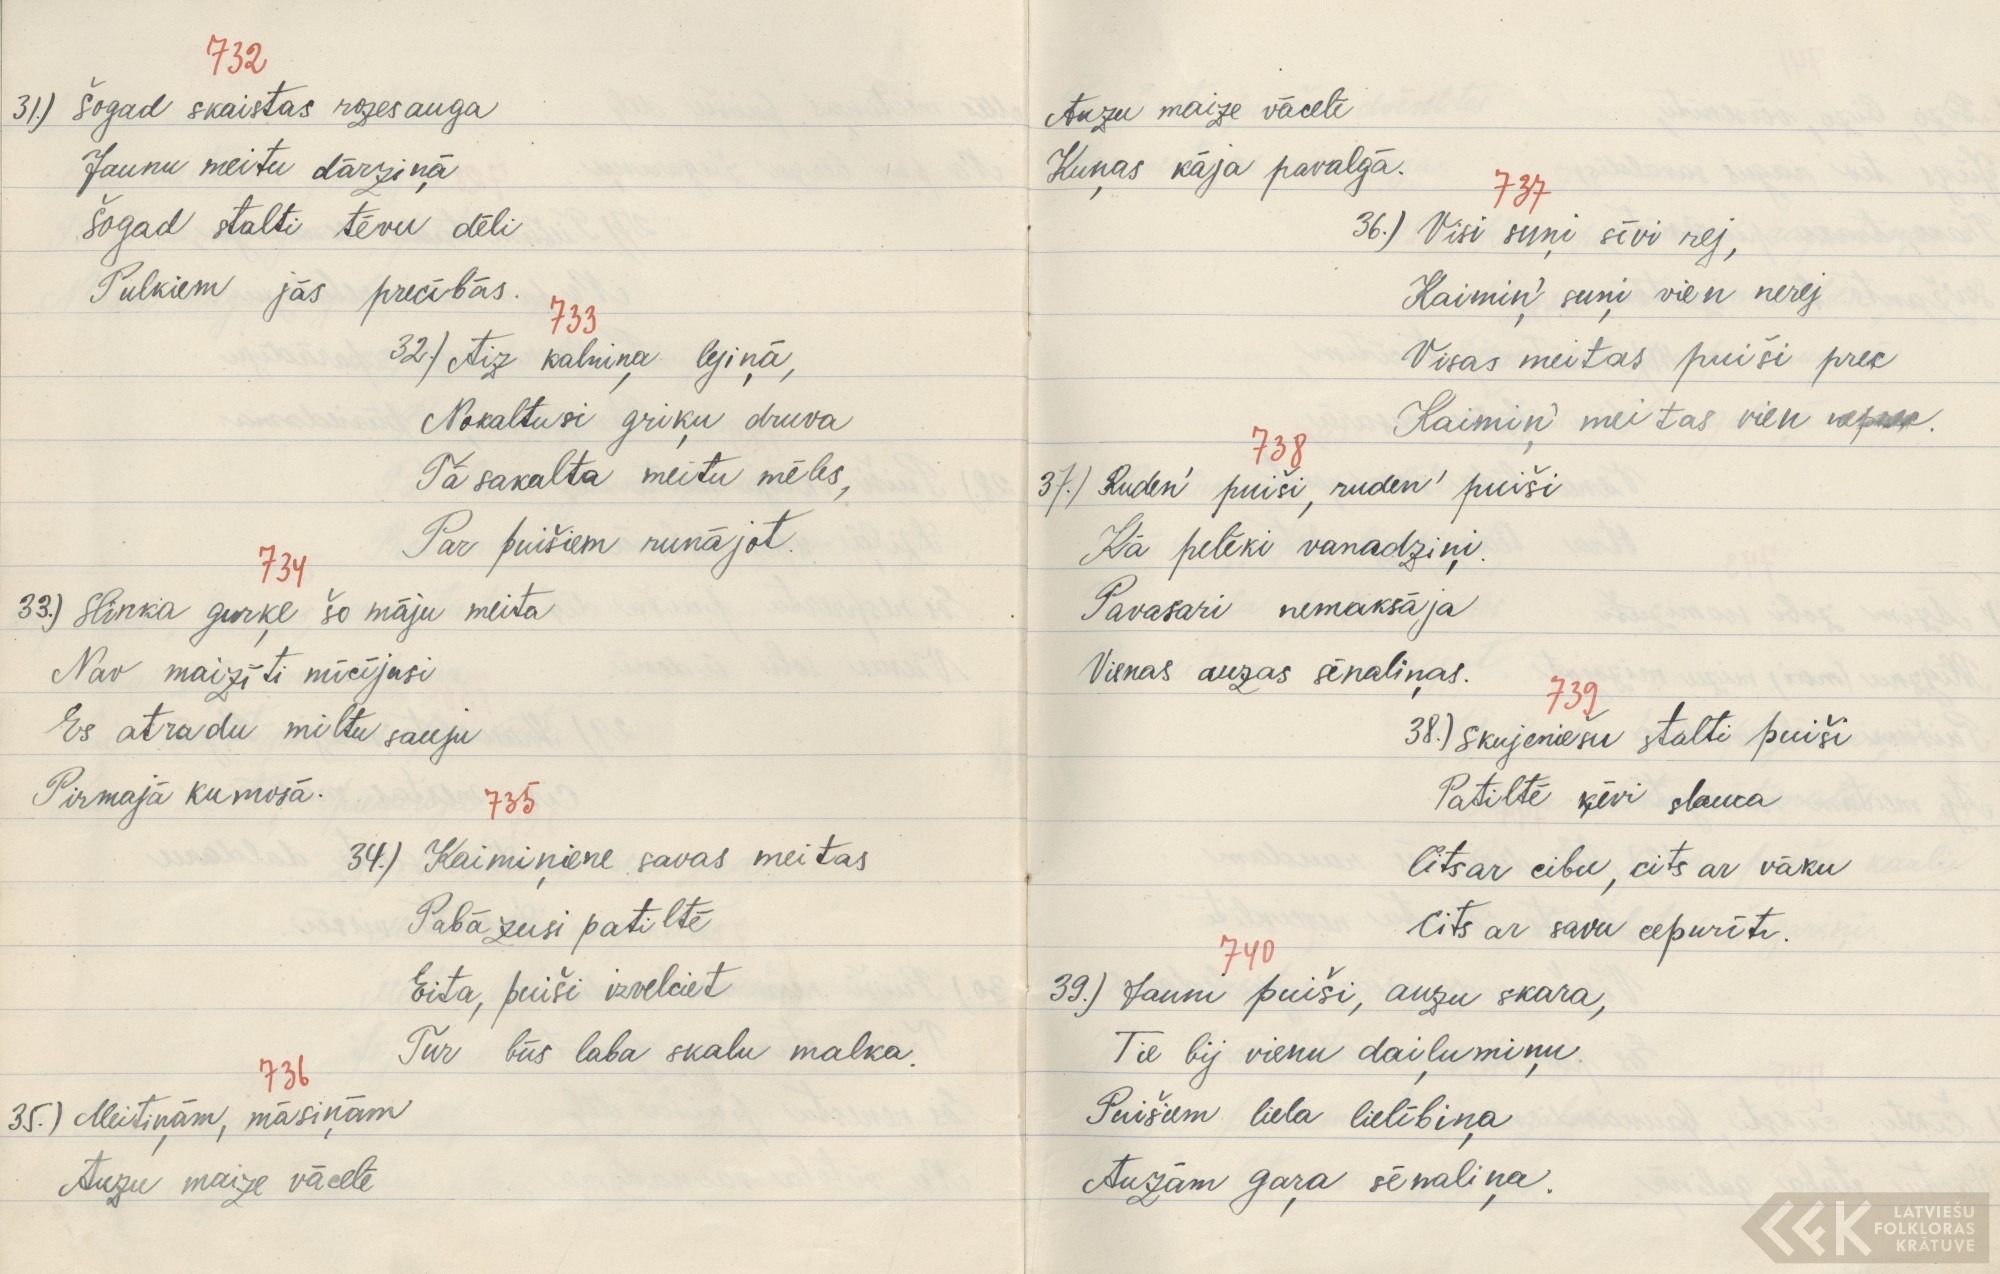 732
31.) Šogad skaistas rozes auga
Jaunu meitu dārziņā
Šogad stalti tēvu dēli
Pulkiem jās precībās.
733
32.) Aiz kalniņa lejiņā,
Nokaltusi griķu druva
Tā sakalta meitu mēles,
Par puišiem runājot.
734
33.) Slinka gurķe šo māju meita
Nav maizīti mīcījusi
Es atradu miltu sauju
Pirmajā kumosā.
735
34.) Kaimiņiene savas meitas
Pabāzusi patiltē
Eita, puiši izvelciet
Tur būs laba skalu malka.
736
35.) Meitiņām, māsiņām
Auzu maize vācelē
Auzu maize vācelē
Kuņas kāja pavalgā.
737
36.) Visi suņi sīvi rej,
Kaimiņ' suņi vien nerej
Visas meitas puiši prec
Kaimiņ' meitas vien neprec.
738
37.) Ruden' puiši, ruden' puiši
Kā pelēki vanadziņi.
Pavasari nemaksāja
Vienas auzas sēnaliņas.
739
38.) Skujeniešu stalti puiši
Patiltē ķēvi slauca
Cits ar cibu, cits ar vāku
Cits ar savu cepurīti.
740
39.) Jauni puiši, auzu skara,
Tie bij vienu daiļumiņu.
Puišiem liela lielībiņa
Auzām gaŗa sēnaliņa.
LATVIEŠU
FOLKLORAS
KRĀTUVE